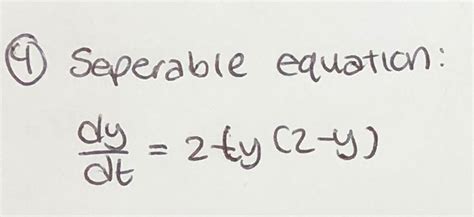 ④ Seperable equation:
dy/dt = 2ty(2-y)